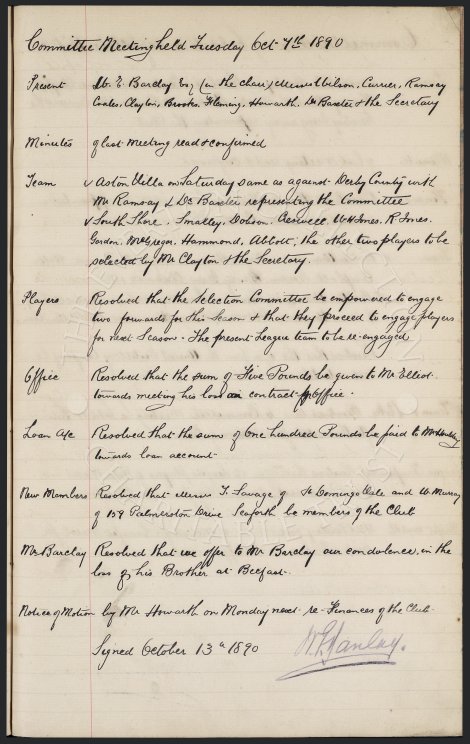 Committee Meeting held Tuesday Oct 7th 1890
Present W. E. Barclay Esq (in the chair) Messrs Wilson, Currier, Ramsay
Coates, Clayton, Brooks, Fleming, Howarth, Dr Baxter & the Secretary
Minutes of last Meeting read & confirmed
Team v Aston Villa on Saturday same as against Derby County with
Mr Ramsay & Dr Baxter representing the Committee
v South Shore. Smalley, Dobson, W H Jones, R Jones.
Gordon, McGregor, Hammond, Abbott, the other two players to be
selected by Mr Clayton & the Secretary.
Players Resolved that the Selection Committee be empowered to engage
two forwards for this Season & that they proceed to engage players
for next Season. The present League team to be re-engaged
Office Resolved that the sum of Five Pounds be given to Mr Elliot
towards meeting his loss on contract for Office.
Loan A/c Resolved that the sum of One hundred Pounds be paid to Mr
towards loan account.
New Members Resolved that Messrs T. Savage of St Domingo Vale and W. Murray
of 159 Palmerston Drive Seaforth be members of the Club
Mr Barclay Resolved that we offer to Mr Barclay our condolence, in the
loss of his Brother at Belfast.
Notice of Motion by Mr Howarth on Monday next re-Finances of the Club.
Signed October 13th 1890